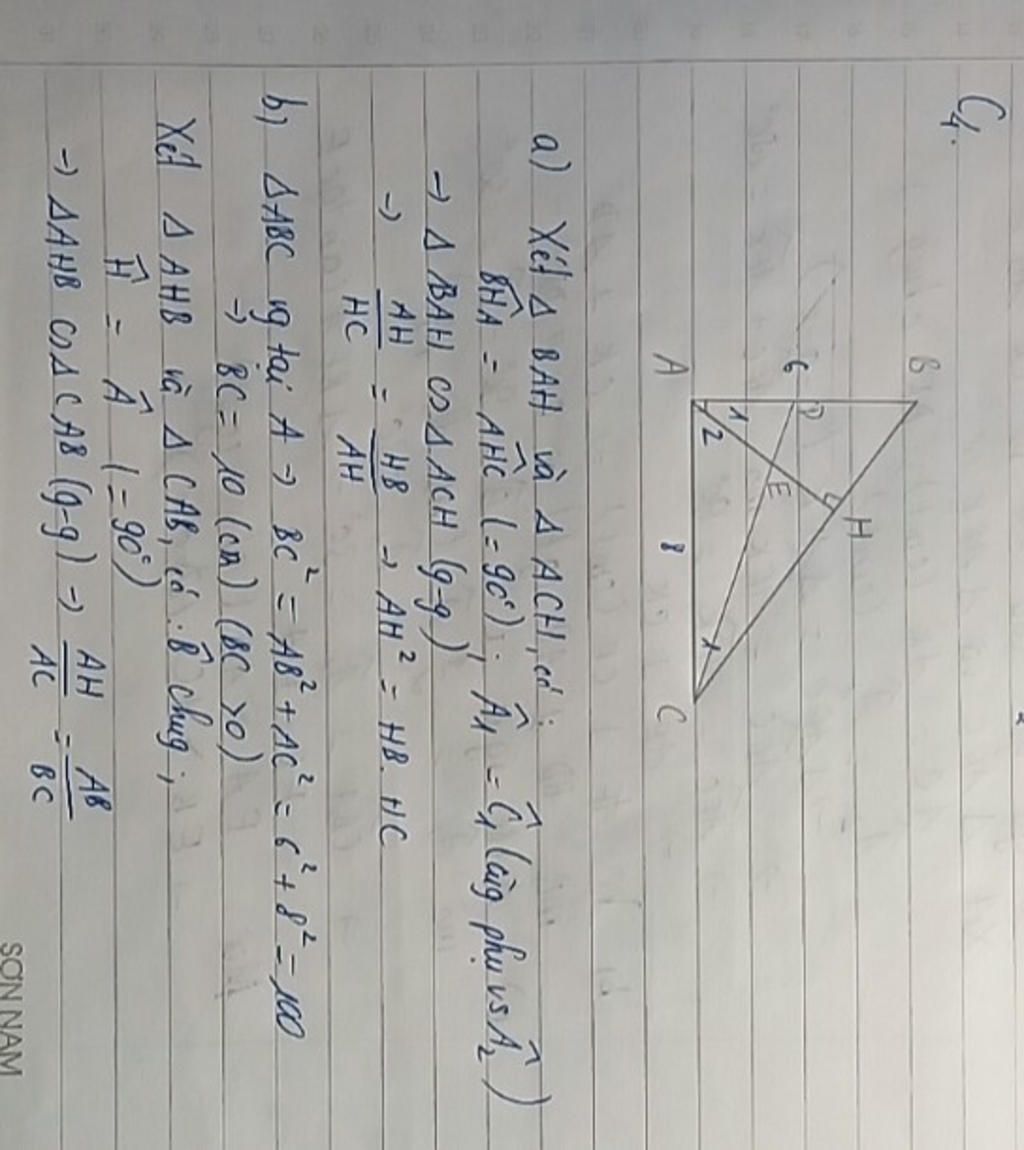 C4.
B
6
D
H
1
E
2
1
A
8
C
a) Xét Δ BAH và Δ ACH, có:
B̂HA = ÂHC (= 90°). ; Â₁ = Ĉ₁ (cùg phụ vs Â₂)
→ Δ BAH ∽ Δ ACH (g-g)
→ AH/HC = HB/AH → AH² = HB. HC
b) ΔABC vg tại A → BC² = AB² + AC² = 6² + 8² = 100
→ BC = 10 (cm) (BC > 0)
Xét Δ AHB và Δ CAB, có. B̂ chug ;
Ĥ = Â (= 90°)
→ Δ AHB ∽ Δ CAB (g-g) → AH/AC = AB/BC
SƠN NAM